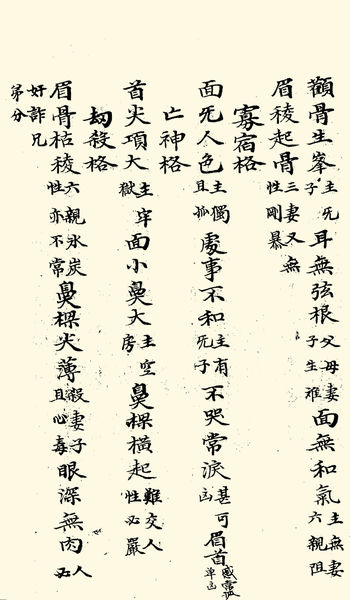 顴骨生峯主死子耳無弦根父母妻子生难面無和氣主無妻六親阻
眉稜起骨三妻又無性剛暴
寡宿格
面死人色主獨且孤處事不和主有死子不哭常淚甚可凶眉首
亡神格
首尖項大主牢獄面小鼻大主空房鼻樑橫起難交人性必嚴
劫殺格
眉骨枯稜六親氷炭性亦不常鼻樑尖薄殺妻子且心毒眼深無肉人必
奸詐兄弟分